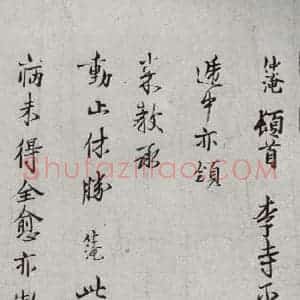 仲淹頓首 李寺丞
遞中亦領
來教承
動止休勝 仲淹 此
病未得全愈亦
Shufaziliao.com